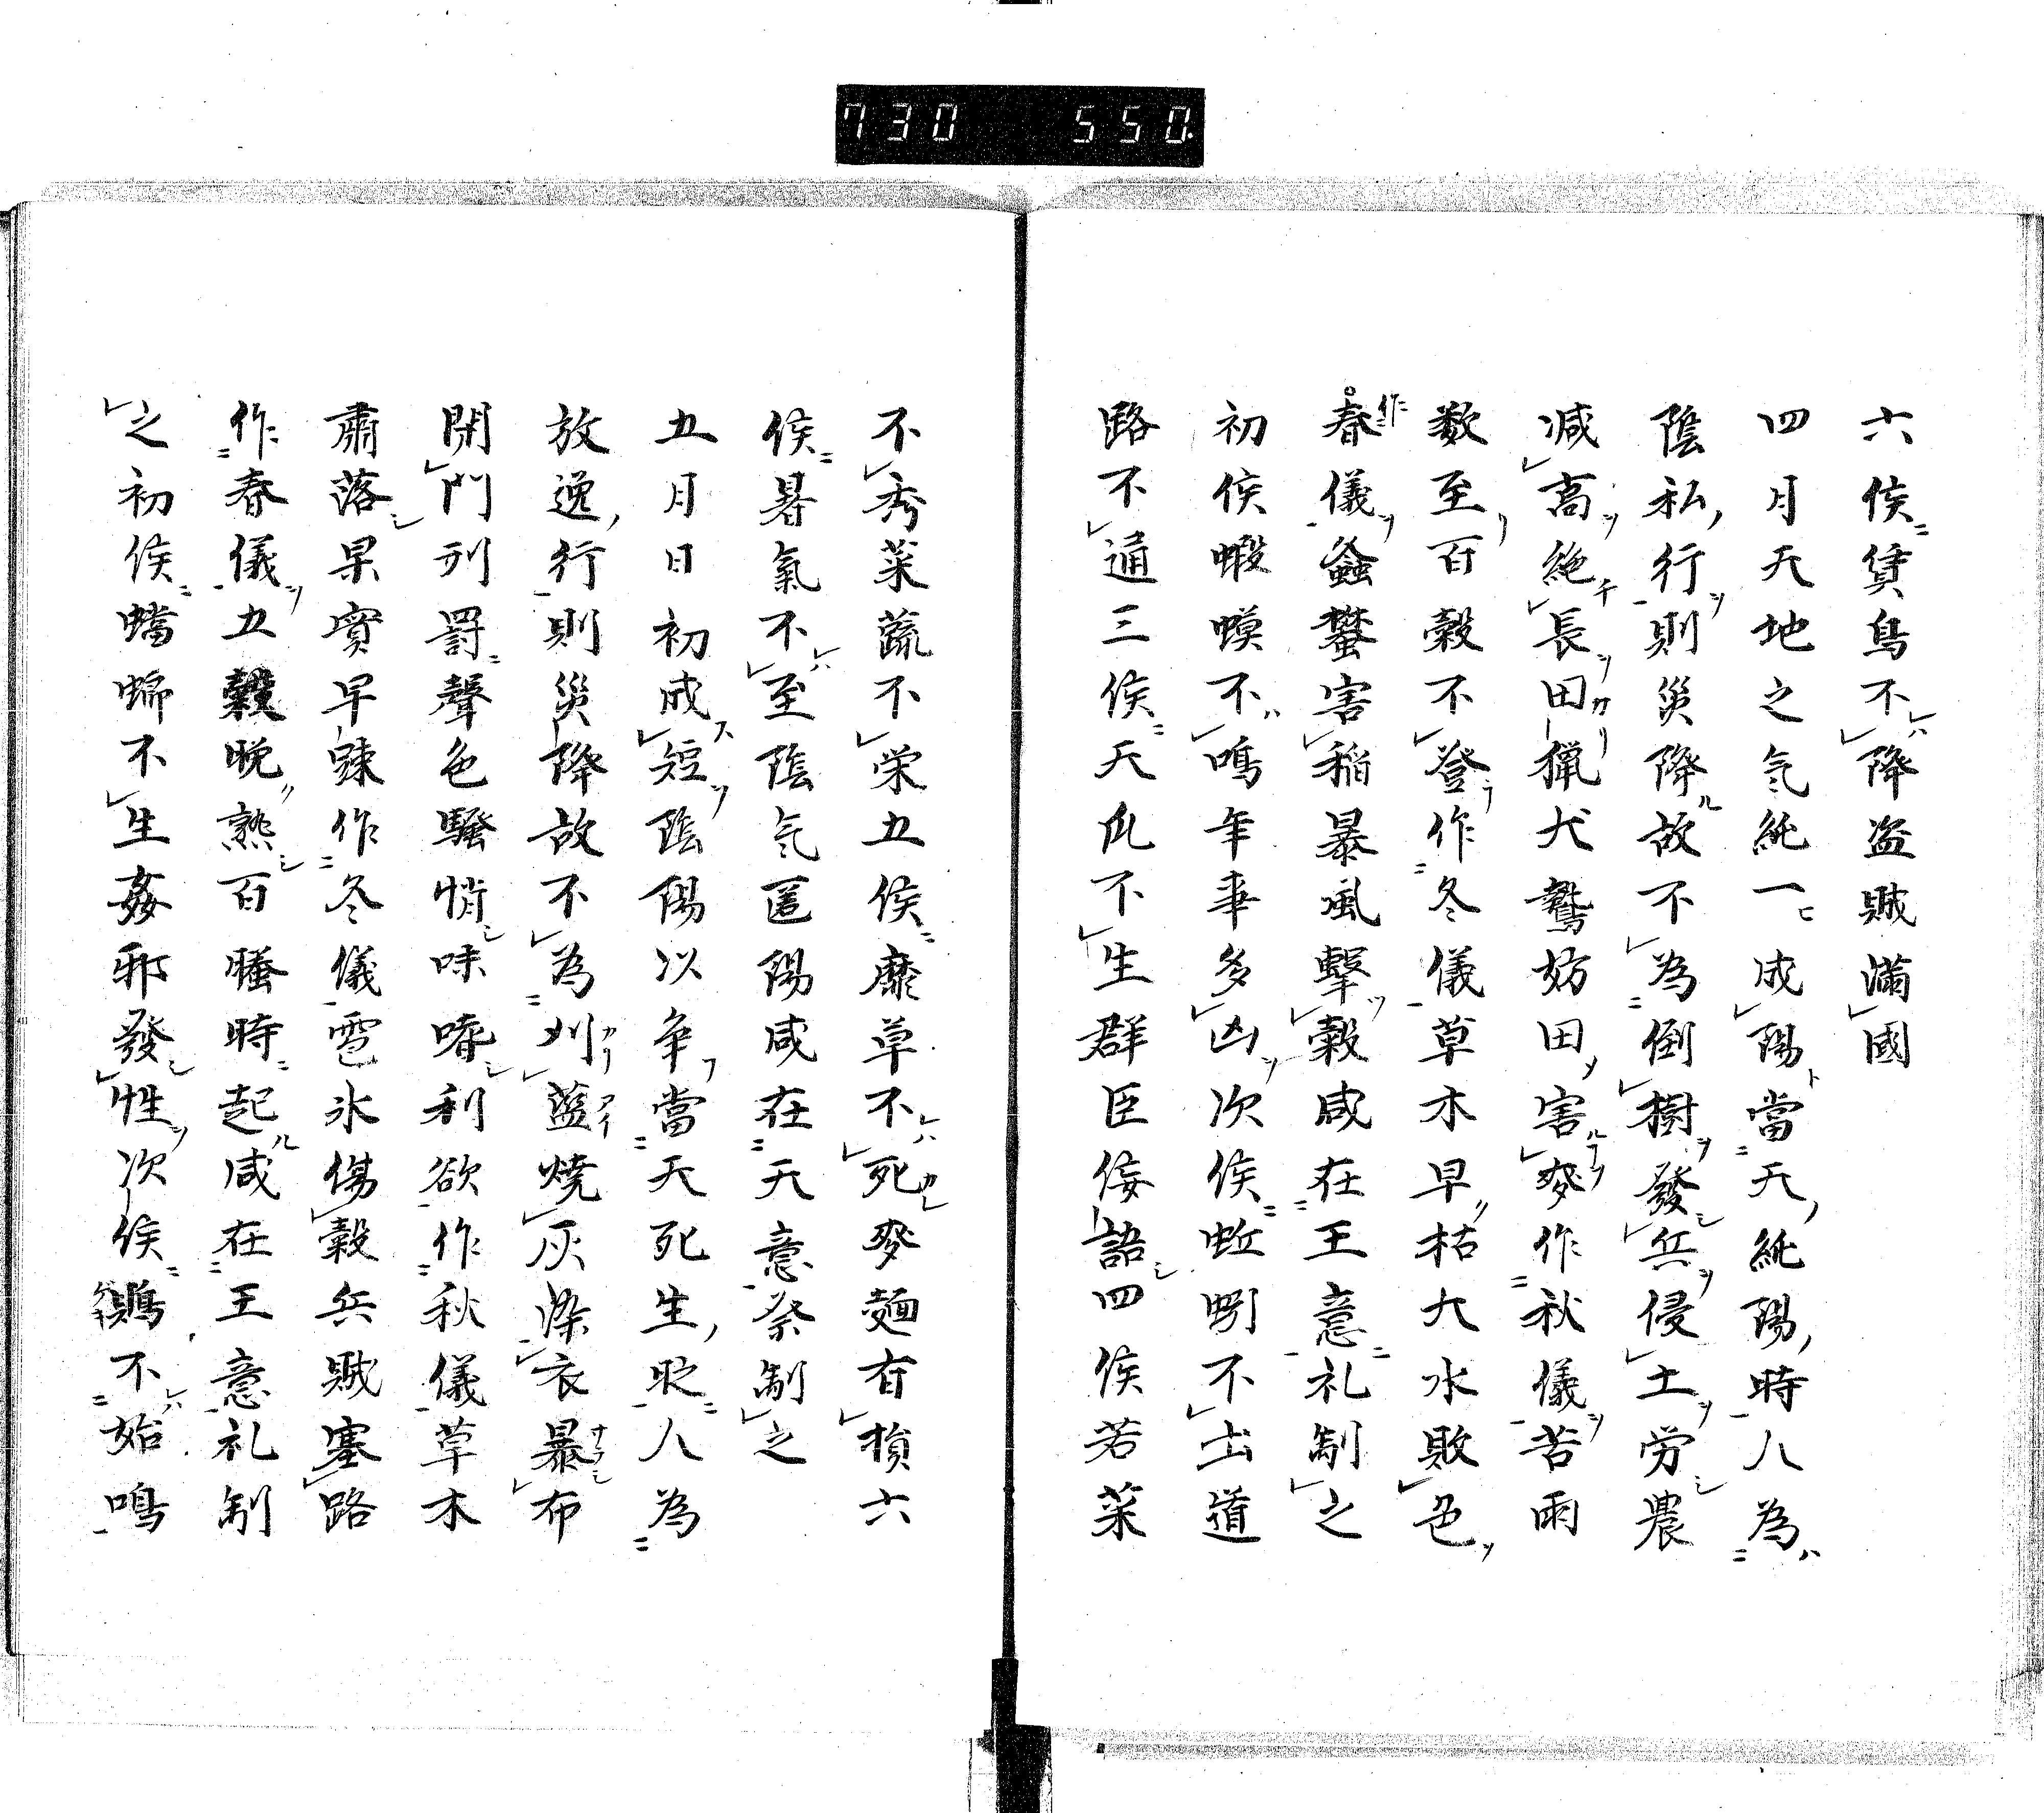 730 550
六候賃鳥不降盗賊満國
四月天地之気純一成陽當天純陽時人為
陰私行則災降故不為倒樹發兵侵土労農
減高絶長田猟犬鷙妨田害麥作秋儀苦雨
数至百穀不登作冬儀草木早枯大水敗色
作春儀螽䗬害稲暴風撃穀咸在王意礼制之
初候蝦蟆不鳴年事多凶次候蚯蚓不出道
路不通三候天瓜不生群臣侫語四候若菜
不秀菜蔬不栄五候靡草不死麥麺有損六
候暑氣不至陰気匿陽咸在天意祭制之
五月日初成短陰陽以争當天死生時人為
放逸行則災降故不為刈藍焼灰染衣暴布
閉門刑罸聲色騒悄味嗜利欲作秋儀草木
肅落果實早踈作冬儀雹氷傷穀兵賊塞路
作春儀五穀晩熟百螣時起咸在王意礼制
之初候蟷蜋不生姦邪發性次候鵙不始鳴